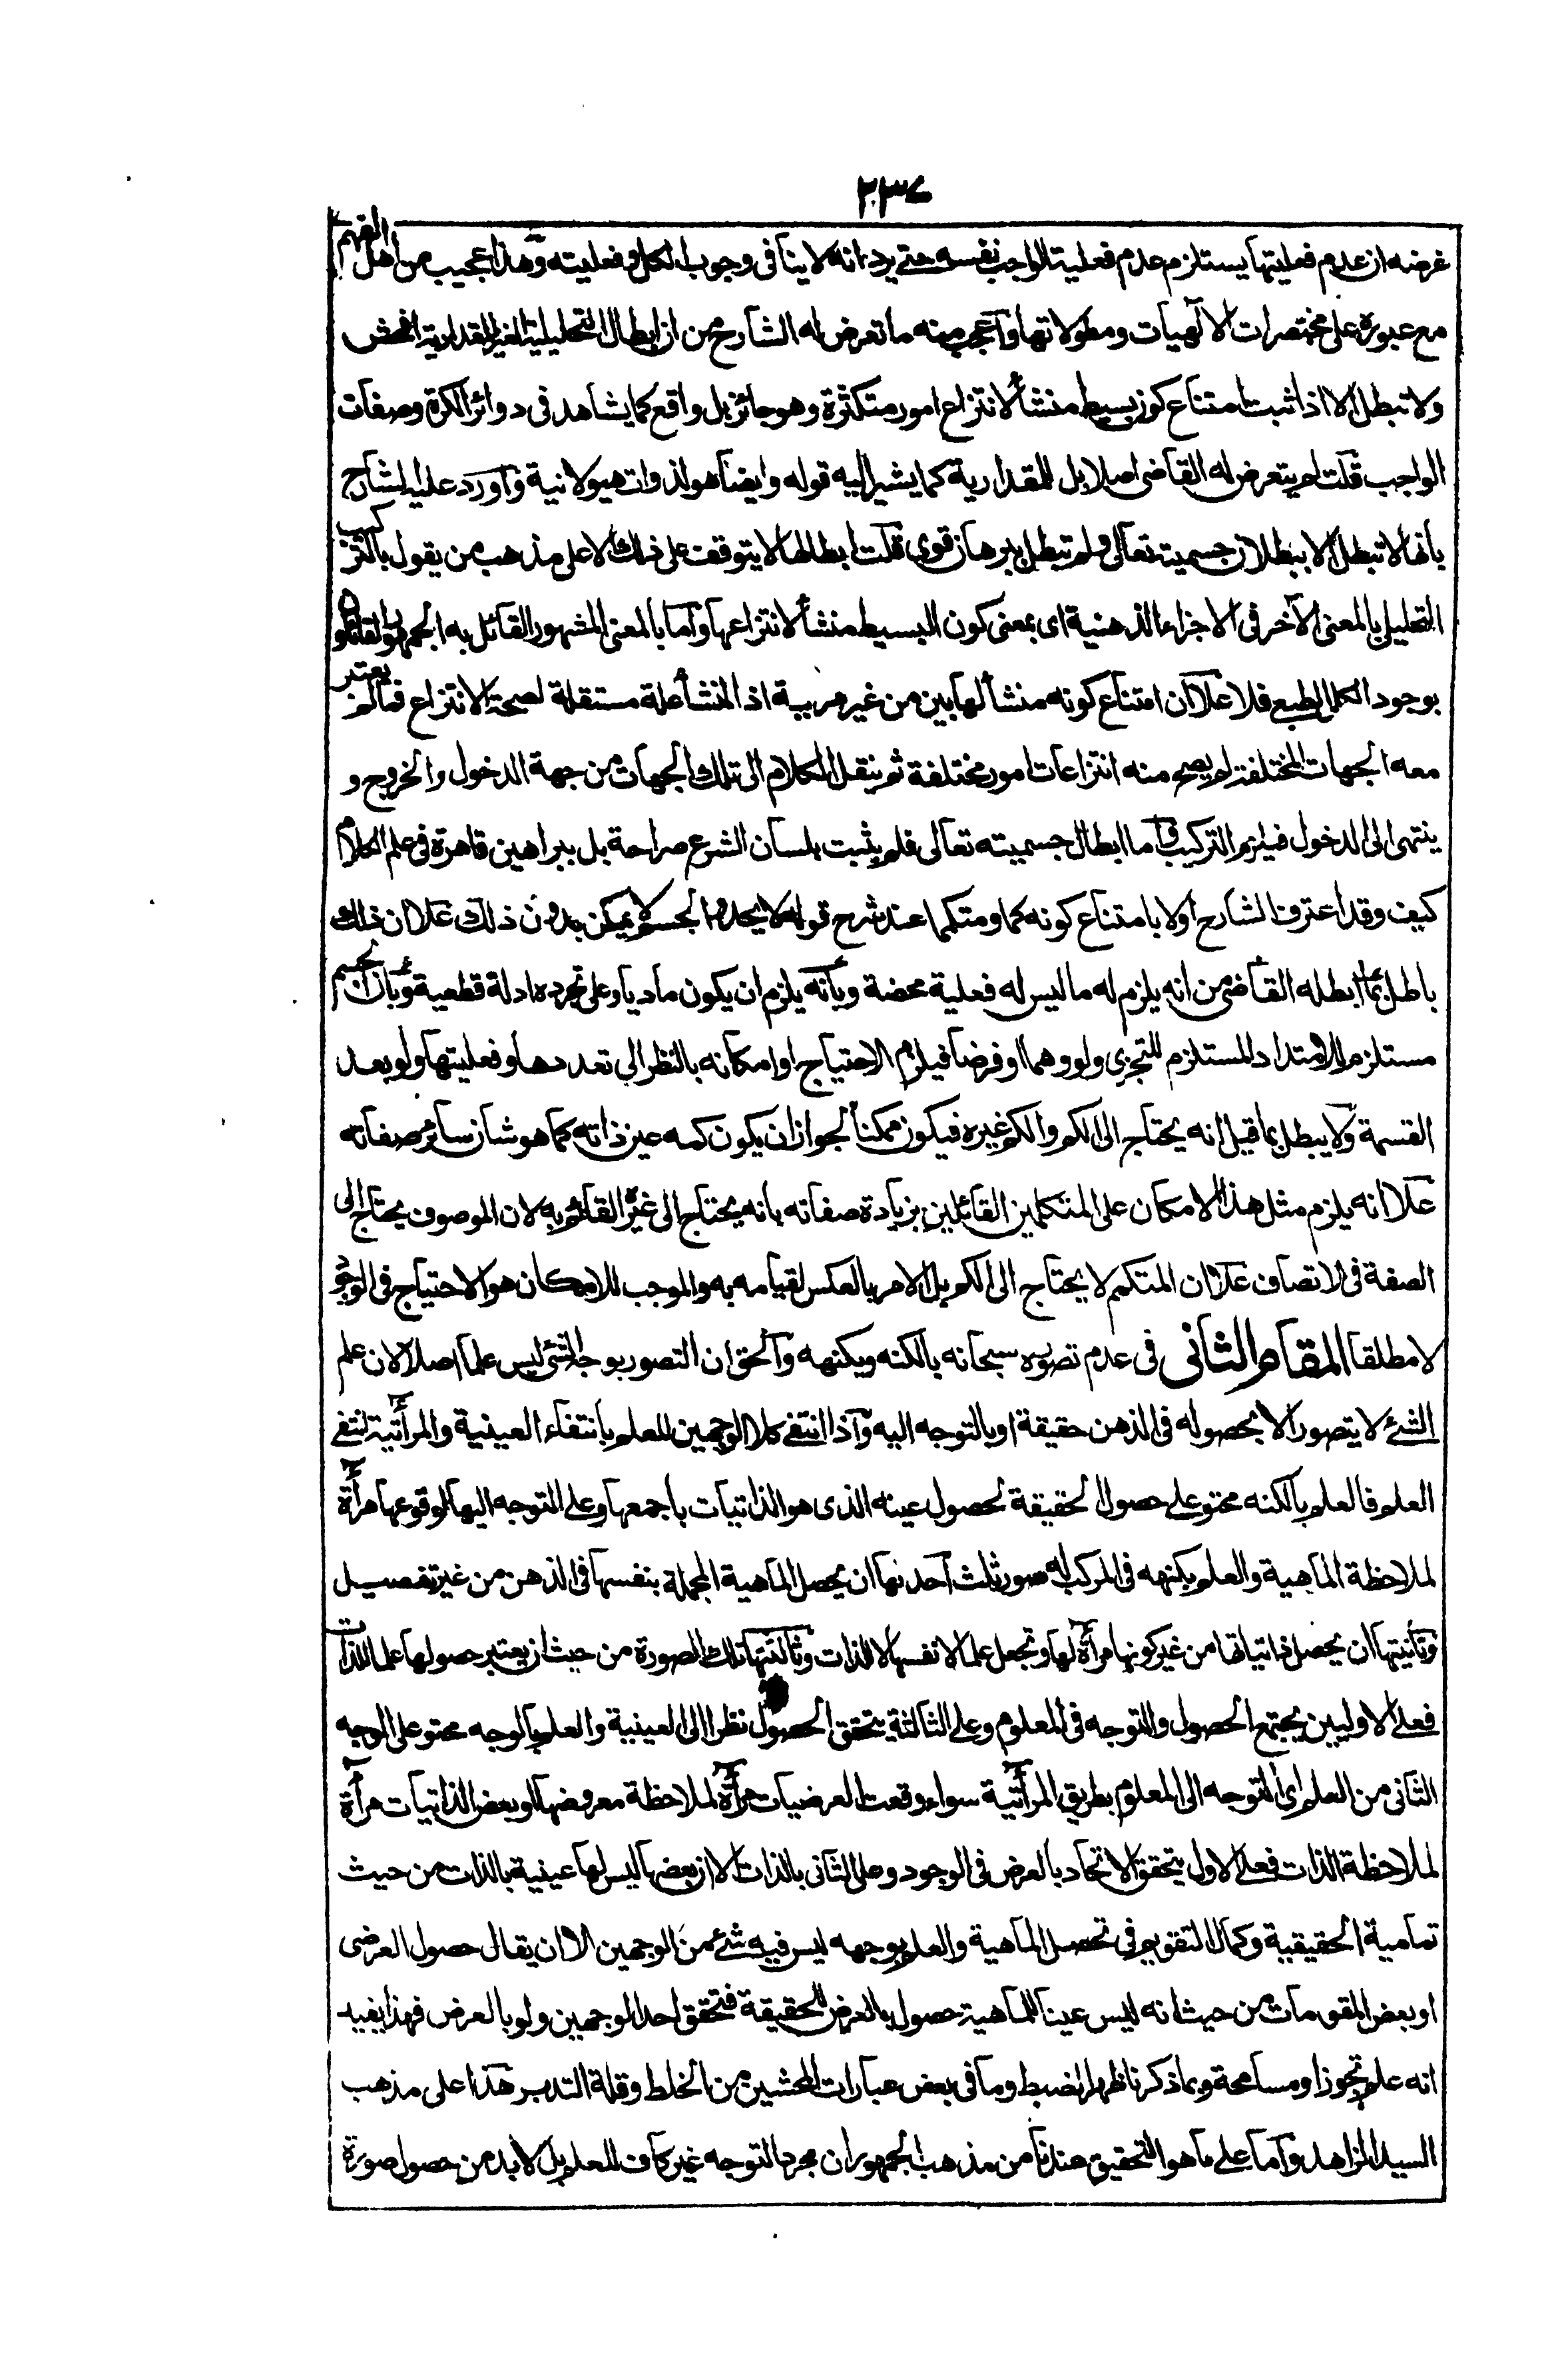 ٢٣٤
غرضه ان عدم فعليتها يستلزم عدم فعلية الواجب نفسه حتى يرد انه لا ينافى وجوب الكل وفعليته وهذا عجيب من اهل الفهم
مع عبوره على مختصرات الالهيات ومطولاتها واعجب منه ما تعرض له الشارح من ان ابطال التحليلية الغير المقدارية افحش
ولا تبطل الا اذا ثبت امتناع كون بسيط منشأ لانتزاع امور متكثرة وهو جائز بل واقع كما يشاهد فى دوائر الكرة وصفات
الواجب قلت لم يتعرض له القاضى اصلا بل للمقدارية كما يشير اليه قوله وايضا هو لذوات هيولانية واورد عليه الشارح
بانها لا تبطل الا ببطلان جسميته تعالى ولم تبطل ببرهان قوى قلت ابطالها لا يتوقف على ذلك الا على مذهب من يقول بالتركيب
التحليل بالمعنى الآخر فى الاجزاء الذهنية اى بمعنى كون البسيط منشأ لانتزاعها واما بالمعنى المشهور القائل به الجمهور القائلون
بوجود الكلى الطبعى فلا علا ان امتناع كونه منشأ لها بين من غير مريبة اذ المنشأ علة مستقلة لصحة الانتزاع فما لم يعتبر
معه الجهات المختلفة لم يصح منه انتزاعات امور مختلفة ثم ينقل الكلام الى تلك الجهات من جهة الدخول والخروج و
ينتهى الى الدخول فيلزم التركيب واما ابطال جسميته تعالى فلم يثبت بلسان الشرع صراحة بل ببراهين قاهرة فى علم الكلام
كيف وقد اعترف الشارح اولا بامتناع كونه كما ومتكمما عند شرح قوله لا يحد والجسم لا يمكن بدون ذلك علا ان ذلك
باطل بما ابطله القاضى من انه يلزم له ما ليس له فعلية محضة وبانه يلزم ان يكون ماديا وعلى تجرده ادلة قطعية وبان الجسم
مستلزم للامتداد المستلزم للتجزى ولو وهما او فرضا فيلزم الاحتياج او امكانه بالنظر الى تعددها وفعليتها ولو بعد
القسمة ولا يبطل بما قيل انه يحتاج الى الكم والكم غيره فيكون ممكنا لجواز ان يكون كمه عين ذاته كما هو شان سائر صفاته
علا انه يلزم مثل هذا الامكان على المتكلمين القائلين بزيادة صفاته بانه يحتاج الى غيره القائم به لان الموصوف يحتاج الى
الصفة فى الاتصاف علا ان المتكمم لا يحتاج الى الكم بل الامر بالعكس لقيامه به والموجب للامكان هو الاحتياج فى الوجود
لا مطلقا المقام الثانى فى عدم تصوره سبحانه بالكنه وبكنهه والحق ان التصور بوجه الشئ ليس علما اصلا لان علم
الشئ لا يتصور الا بحصوله فى الذهن حقيقة او بالتوجه اليه واذا انتفى كلا الوجهين للعلم بانتفاء العينية والمرأتية انتفى
العلم فالعلم بالكنه محتو على حصول الحقيقة لحصول عينه الذى هو الذاتيات باجمعها وعلى التوجه اليها لوقوعها مرأة
لملاحظة الماهية والعلم بكنهه فى المركب له صور ثلث احدٰها ان يحصل الماهية المجملة بنفسها فى الذهن من غير تفصيل
وثانيتها ان يحصل ذاتياتها من غير كونها مرأة لها وتجعل علما لانفسها لا للذات وثالثتها تلك الصورة من حيث ان يعتبر حصولها علما للذات
فعلى الاوليين يجتمع الحصول والتوجه فى المعلوم وعلى الثالثة يتحقق الحصول نظرا الى العينية والعلم بالوجه محتو على الوجه
الثانى من العلم اى التوجه الى المعلوم بطريق المرأتية سواء وقعت العرضيات مرأة لملاحظة معروضها او بعض الذاتيات مرأة
لملاحظة الذات فعلى الاول يتحقق الاتحاد بالعرض فى الوجود وعلى الثانى بالذات الا ان بعضها ليس لها عينية بالذات من حيث
تمامية الحقيقية وكمال التقويم فى تحصل الماهية والعلم بوجهه ليس فيه شئ من الوجهين الا ان يقال حصول العرضى
او بعض المقومات من حيث انه ليس عينا للماهية حصول بالعرض للحقيقة فتحقق احد الوجهين ولو بالعرض فهذا يفيد
انه علم تجوزا ومسامحة وبما ذكرنا ظهر الضبط وما فى بعض عبارات المحشين من الخلط وقلة التدبر هذا على مذهب
السيد الزاهد واما على ما هو التحقيق عندنا من مذهب الجمهور ان مجرد التوجه غير كاف للعلم بل لا بد من حصول صورة